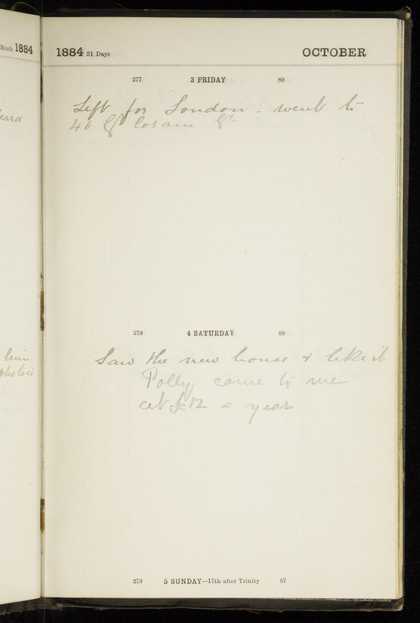 1884
1884 31 Days OCTOBER
277 3 FRIDAY 89
Left for London - went to
46 Gt
278 4 SATURDAY 88
Saw the new house & like it
Polly came to me
at £12 a year
279 5 SUNDAY—17th after Trinity 87